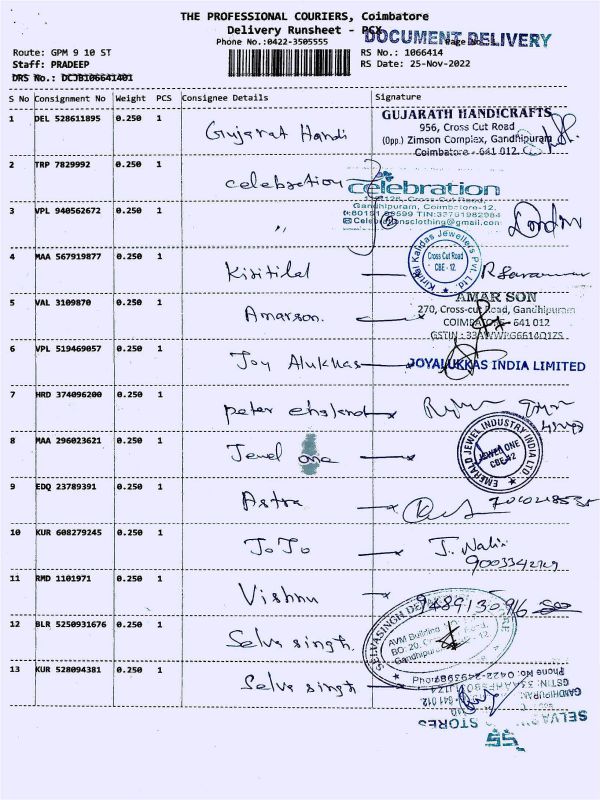 THE PROFESSIONAL COURIERS, Coimbatore
Delivery Runsheet - PCX
DOCUMENT DELIVERY
Phone No.:0422-3505555
Route: GPM 9 10 ST
RS No.: 1066414
Staff: PRADEEP
RS Date: 25-Nov-2022
DRS No.: DCJB106641401
S No Consignment No Weight PCS Consignee Details Signature
1 DEL 528611895 0.250 1 Gujarat Handi
GUJARATH HANDICRAFTS
956, Cross Cut Road
(Opp.) Zimson Complex, Gandhipuram
Coimbatore - 641 012.
2 TRP 7829992 0.250 1 celebration
celebration
Gandhipuram, Coimbatore-12.
3 VPL 940562672 0.250 1 "
4 MAA 567919877 0.250 1 Kiritilal
Kirtilal Kalidas Jewellers Pvt. Ltd.
Cross Cut Road
CBE - 12.
5 VAL 3109870 0.250 1 Amarson.
AMAR SON
270, Cross-cut Road, Gandhipuram
COIMBATORE - 641 012
6 VPL 519469057 0.250 1 Joy Alukkas
JOYALUKKAS INDIA LIMITED
7 HRD 374096200 0.250 1 peter England
8 MAA 296023621 0.250 1 Jewel one
EMERALD JEWEL INDUSTRY INDIA LTD
JEWEL ONE
9 EDQ 23789391 0.250 1 Astra
10 KUR 608279245 0.250 1 JoJo
11 RMD 1101971 0.250 1 Vishnu
12 BLR 5250931676 0.250 1 Selva singh.
AVM Building
13 KUR 528094381 0.250 1 Selva singh
STORES